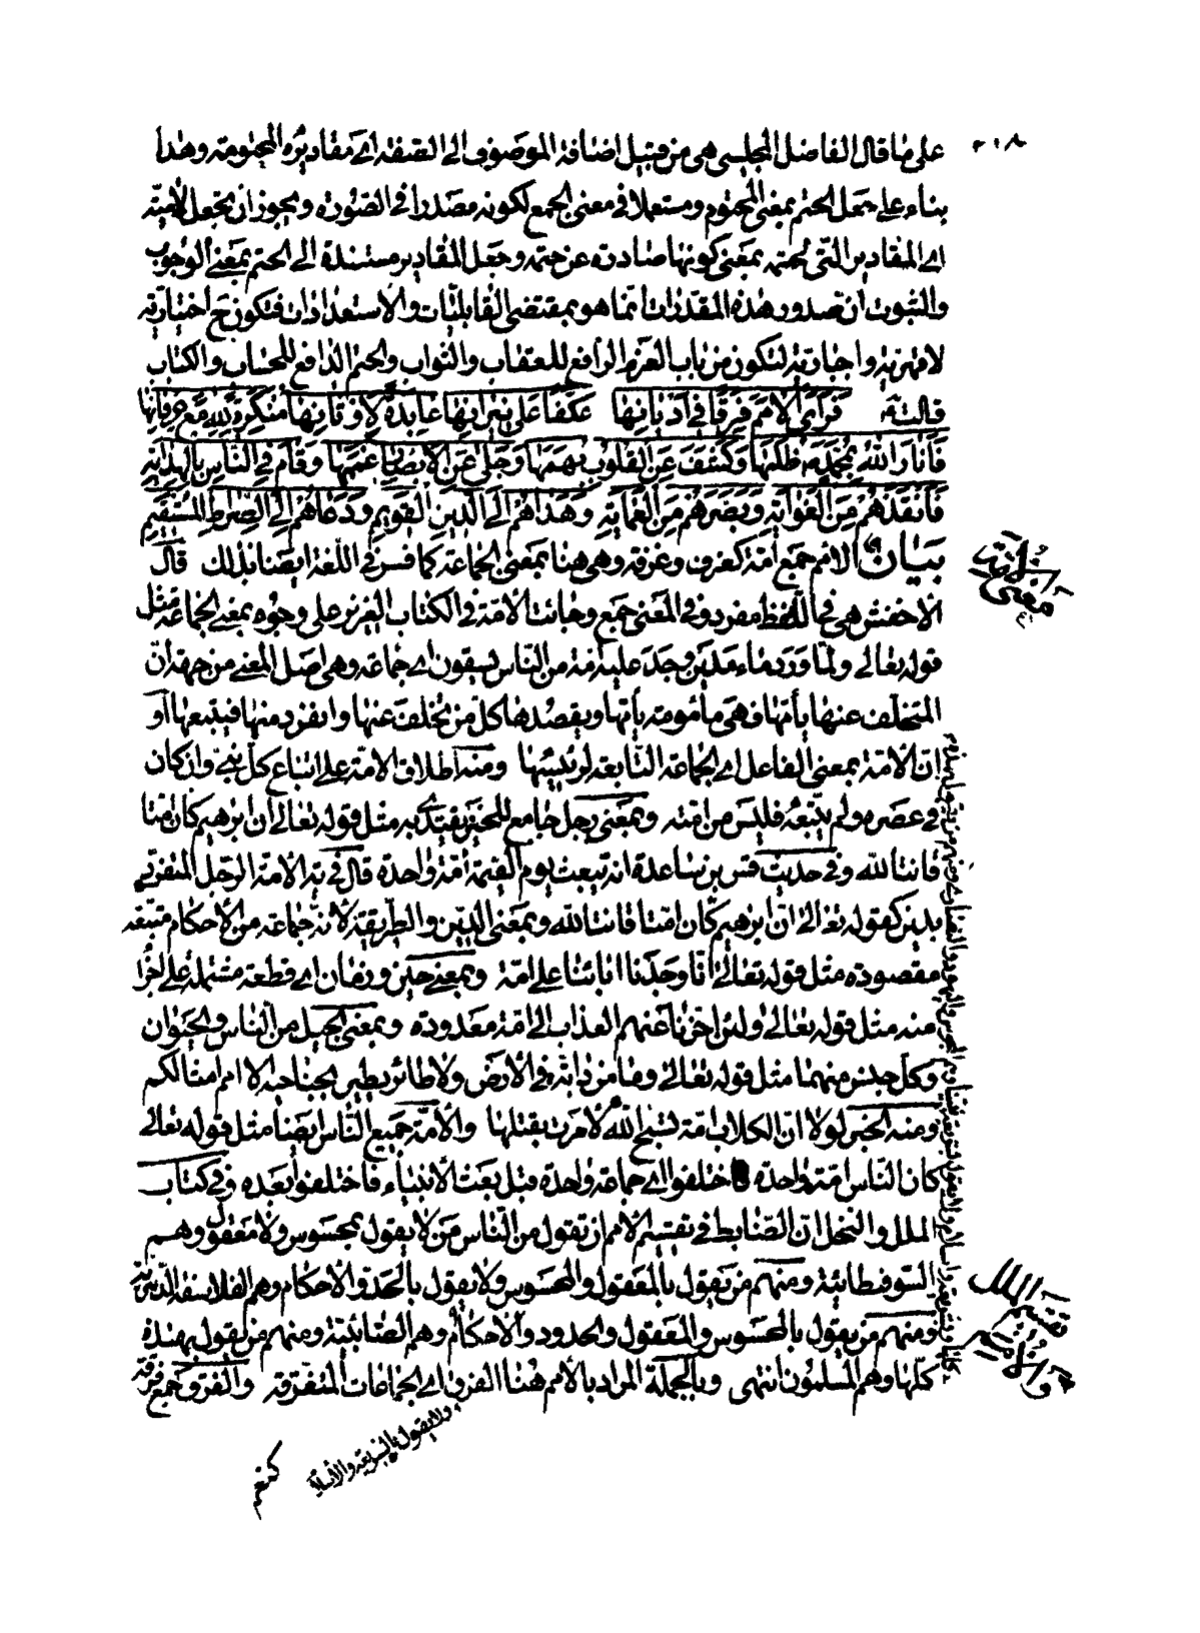 ٣١٨
على ما قال الفاضل المجلسي هي من قبيل اضافة الموصوف الى الصفة اي مقاديره المحتومة وهذا
بناء على جعل الحتم بمعنى المحتوم ومستعملا في معنى الجمع لكونه مصدرا في الصورة ويجوز ان يجعل لامية
اي المقادير التي لحتمه بمعنى كونها صادرة عن حتمه وجعل المقادير مستندة الى الحتم بمعنى الوجوب
والثبوت ان صدور هذه المقدرات انما هو بمقتضى القابليات والاستعدادات فتكون ح اختيارية
لا قهرية واجبارية لتكون من باب العزم الرافع للعقاب والثواب والحتم الدافع للحساب والكتاب
قالت فرأى الامم فرقا في اديانها عكفا على نيرانها عابدة لاوثانها منكرة لله مع عرفانها
فانار الله بمحمد ظلمها وكشف عن القلوب بهمها وجلى عن الابصار غممها وقام في الناس بالهداية
فانقذهم من الغواية وبصرهم من العماية وهداهم الى الدين القويم ودعاهم الى الصراط المستقيم
بيان الامم جمع امة كغرف وغرفة وهي هنا بمعنى الجماعة كما فسر في اللغة ايضا بذلك قال
الاخفش هي في اللفظ مفرد وفي المعنى جمع وجائت الامة في الكتاب العزيز على وجوه بمعنى الجماعة مثل
قوله تعالى ولما ورد ماء مدين وجد عليه امة من الناس يسقون اي جماعة وهي اصل المعنى من جهة ان
المتخلف عنها يأتمها فهي مأمومة يأتمها ويقصدها كل من تخلف عنها وانفرد منها فيتبعها او
ان الامة بمعنى الفاعل اي الجماعة التابعة لرئيسها ومنه اطلاق الامة على اتباع كل نبي وان كان
في عصره ولم يتبعه فليس من امته وبمعنى رجل جامع للخير يقتدى به مثل قوله تعالى ان ابرهيم كان امة
قانتا لله وفي حديث قس بن ساعدة انه يبعث يوم القيمة امة واحدة قال في يه الامة الرجل المتفرد
بدين كقوله تعالى ان ابرهيم كان امة قانتا لله وبمعنى الدين والطريقة لانه جماعة من الاحكام متبعة
مقصودة مثل قوله تعالى انا وجدنا ابائنا على امة وبمعنى حين وزمان اي قطعة مشتملة على اجزاء
منه مثل قوله تعالى ولئن اخرنا عنهم العذاب الى امة معدودة وبمعنى الجيل من الناس والحيوان
وكل جنس منهما مثل قوله تعالى وما من دابة في الارض ولا طائر يطير بجناحيه الا امم امثالكم
ومنه الخبر لولا ان الكلاب امة تسبح الله لامرت بقتلها والامة جميع الناس ايضا مثل قوله تعالى
كان الناس امة واحدة فاختلفوا اي جماعة واحدة قبل بعث الانبياء فاختلفوا بعده وفي كتاب
الملل والنحل ان الضابط في تقسيم الامم ان تقول من الناس من لا يقول بمحسوس ولا معقول وهم
السوفسطائية ومنهم من يقول بالمعقول والمحسوس ولا يقول بالحدود والاحكام وهم الفلاسفة الدهرية
ومنهم من يقول بالمحسوس والمعقول والحدود والاحكام وهم الصابئية ومنهم من يقول بهذه
كلها وهم المسلمون انتهى وبالجملة المراد بالامم هنا الفرق اي الجماعات المتفرقة والفرق جمع فرقة
ولا يقول بالشريعة والاسلام
كنعم
معنى
تقسيم الملل